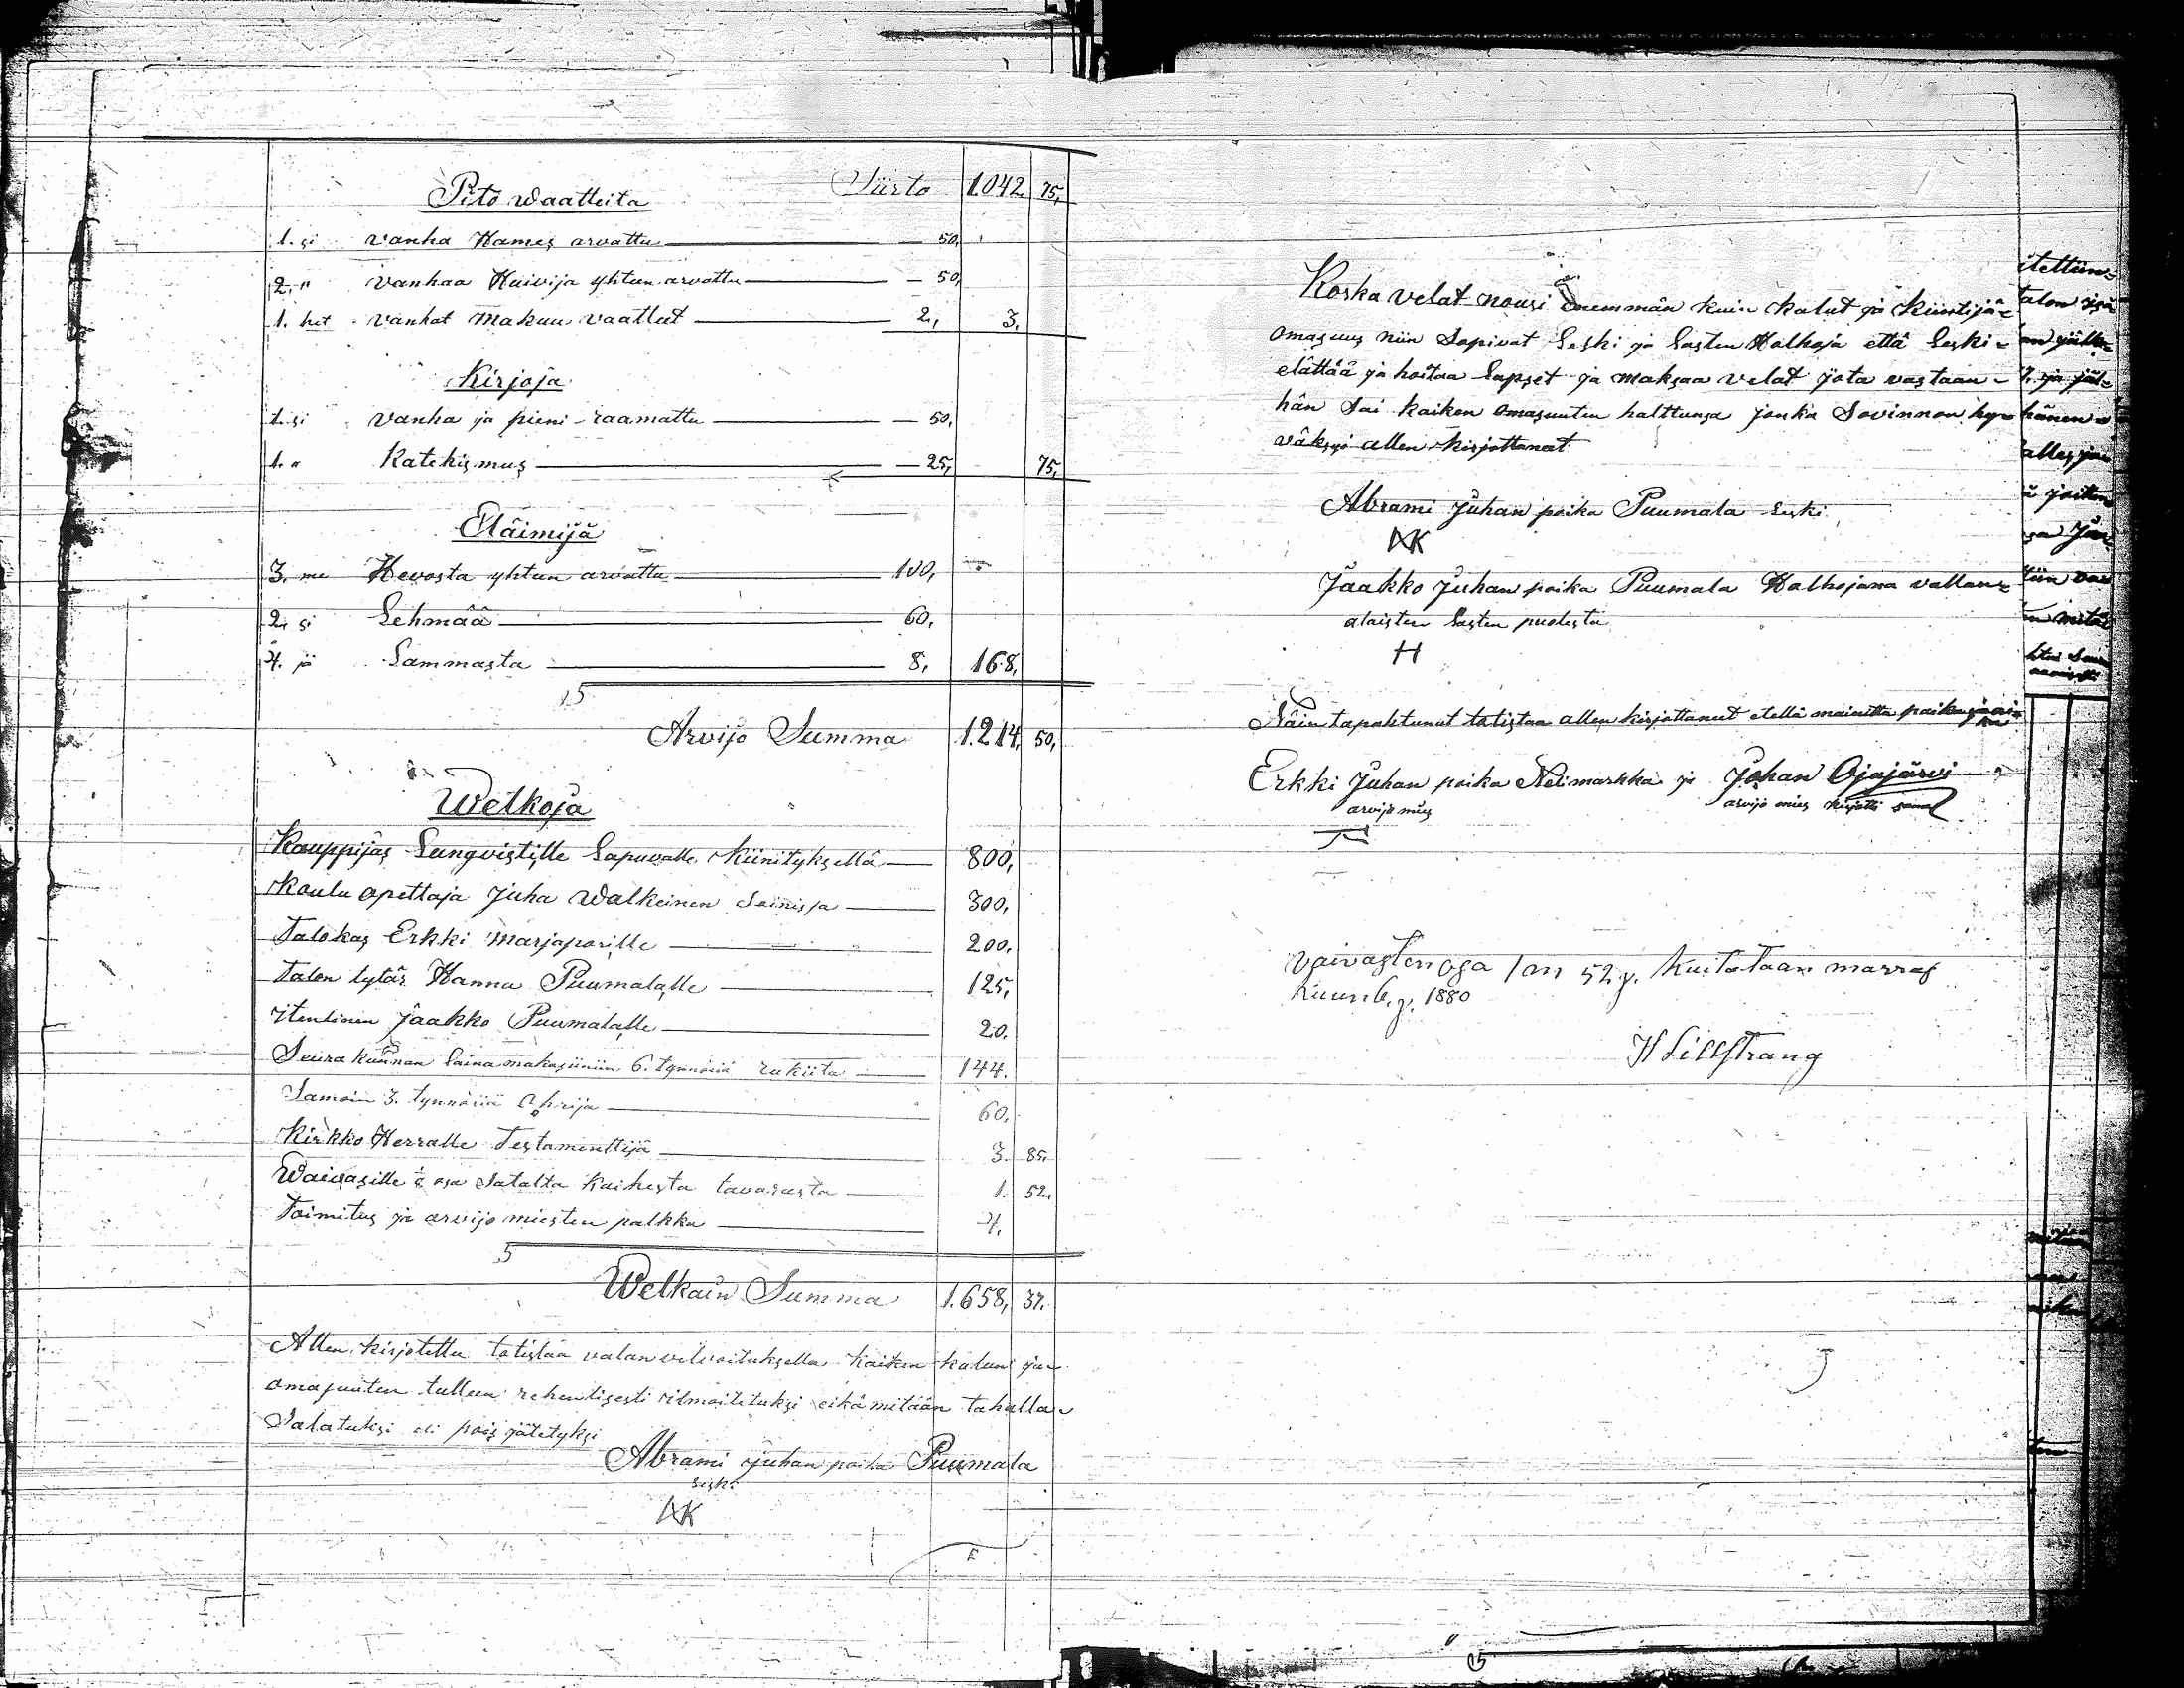 Siirto 1.042. 75,
Pito waatteita
1. si vanha Hames arvattu — 50,
2. " vanhaa Huivija yhteen arvattu — 50,
1. het vanhat makuu vaatteet 2, 3.
Kirjoja
1. si vanha ja pieni raamattu — 50,
1. " Katekismus — 25, 75,
Eläimijä
3. me Hevosta yhteen arvattu 100,
2. si Lehmää 60,
4. jä Lammasta 8, 168,
Arvijo Summa 1.214, 50,
Welkoja
Kauppijas Lungvistille Lapuvalle kiinityksellä 800,
Koulu opettaja Juha Walkeinen Lainissa 300,
Talokas Erkki Marjaporille 200,
Talon tytär Hanna Puumalalle 125,
Itenlinen Jaakko Puumalalle 20.
Seurakunnan Laina makasiiniin 6. tynnöriä rukiita 144.
Samoin 3. tynnöriä Ohrija 60.
Kirkko Herralle Testamenttijä 3. 85.
Waivasille osa Satalta kaikesta tavarasta 1. 52.
Toimitus ja arvijo miesten palkka 4.
Welkain Summa 1.658, 37.
Allen kirjotettu totistaa valan velvoituksella kaiken kalun ja
omasuuten tulleen rehentisesti ilmoitetuksi eikä mitään tahalla
Salatuksi eli pois jätetyksi
Abrami Juhan poika Puumala
Leski
AK
Koska velat nousi enemmän kuin kalut ja kiintijä-
omasuus niin Sopivat Leski ja Lasten Holhoja että Leski-
elättää ja hoitaa Lapset ja maksaa velat jota vastaan-
hän Sai kaiken omasuuten halttunsa jonka Sovinnon hy-
väksyi allen kirjottaneet
Abrami Juhan poika Puumala Leski
AK
Jaakko Juhan poika Puumala Holhojana vallan-
alaisten Lasten puolesta
H
Näin tapahtunut totistaa allen kirjottanut etellä mainittu paikka ja
Erkki Juhan poika Nelimarkka ja Johan Ojajärvi
arvijo mies arvijo mies kirjotti
Vaivasten osa 1 m 52 p. kuitataan marras
kuun 6. p. 1880
H Lillstrang
itettiin-
talon isä-
hänen